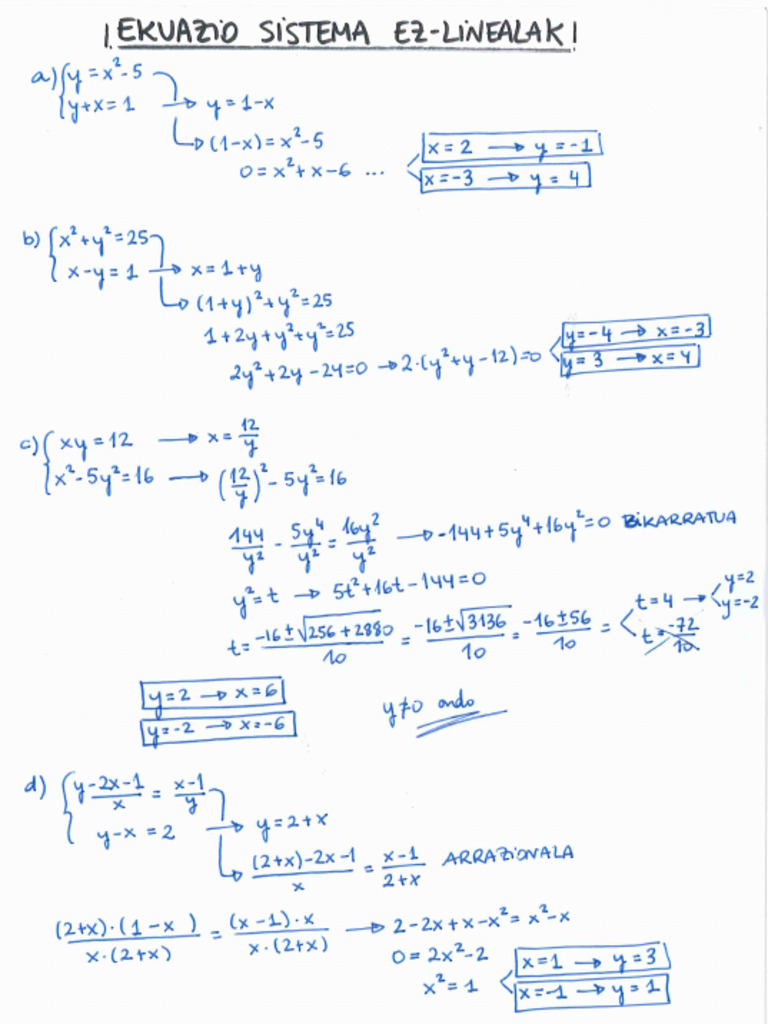 ¡EKUAZIO SISTEMA EZ-LINEALAK!
a) { y = x²-5
y+x = 1 → y = 1-x
→ (1-x) = x²-5
0 = x²+x-6 ... x = 2 → y = -1
x = -3 → y = 4
b) { x²+y² = 25
x-y = 1 → x = 1+y
→ (1+y)²+y² = 25
1+2y+y²+y² = 25
2y²+2y-24=0 → 2·(y²+y-12)=0 y=-4 → x=-3
y=3 → x=4
c) { xy = 12 → x = 12/y
x²-5y²=16 → (12/y)² - 5y² = 16
144/y² - 5y⁴/y² = 16y²/y² → -144+5y⁴+16y²=0 BIKARRATUA
y²=t → 5t²+16t-144=0
t = (-16±√(256+2880))/10 = (-16±√3136)/10 = (-16±56)/10 = t=4 → y=2
y=-2
t = -72/10
y=2 → x=6
y=-2 → x=-6
y≠0 ondo
d) { (y-2x-1)/x = (x-1)/y
y-x = 2 → y = 2+x
→ ((2+x)-2x-1)/x = (x-1)/(2+x) ARRAZIONALA
((2+x)·(1-x))/(x·(2+x)) = ((x-1)·x)/(x·(2+x)) → 2-2x+x-x² = x²-x
0 = 2x²-2
x² = 1 x=1 → y=3
x=-1 → y=1